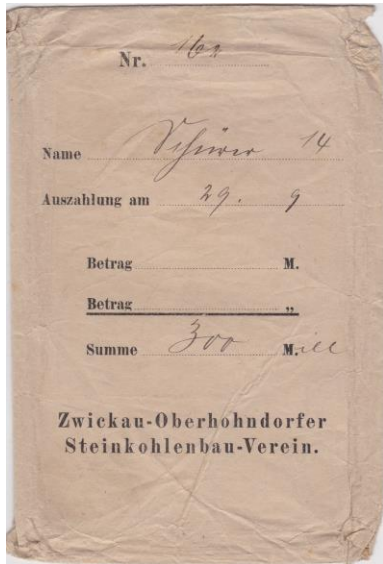 Nr. 162
Name Schürer 14
Auszahlung am 29. 9
Betrag M.
Betrag „
Summe 300 M.ill
Zwickau-Oberhohndorfer
Steinkohlenbau-Verein.